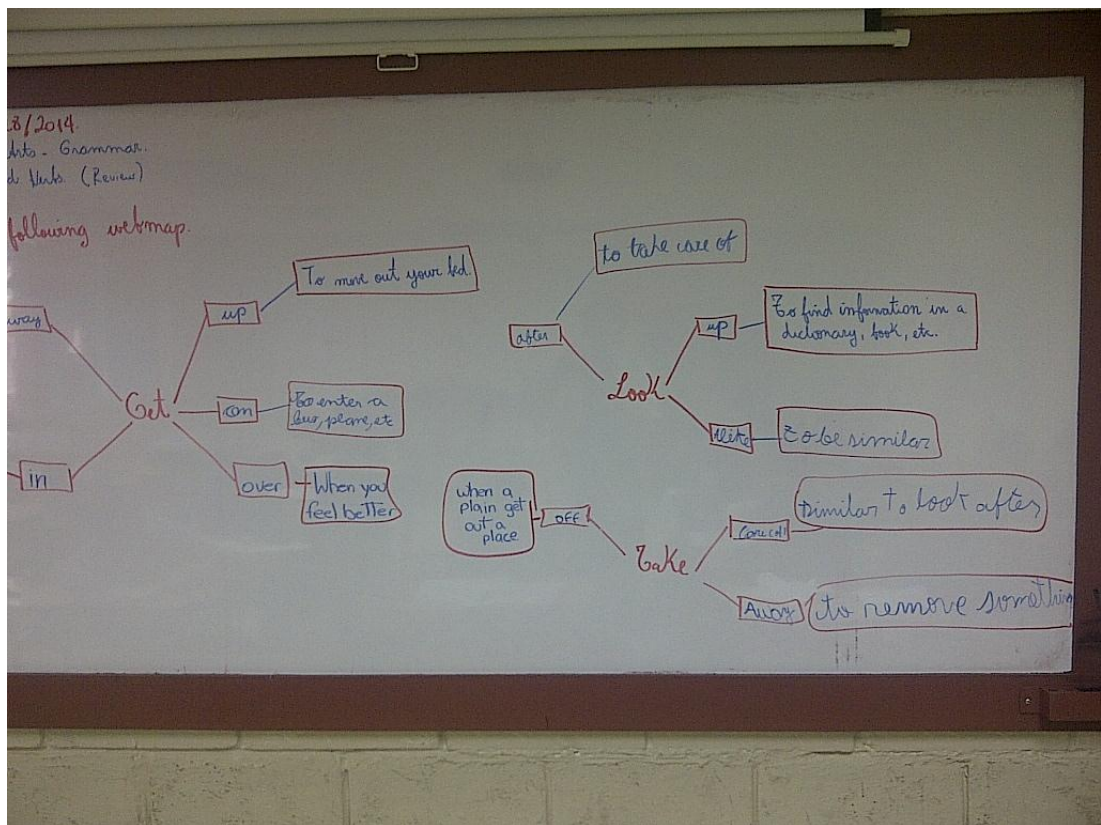 28/2014.
Arts - Grammar.
d Verbs. (Review)
following webmap.
way
in
Get
up
To move out your bed.
on
To enter a
bus, plane, etc
over
When you
feel better
Look
after
to take care of
up
To find information in a
dictionary, book, etc.
like
To be similar
Take
off
when a
plain get
out a
place.
Care of
similar to look after
Away
to remove something